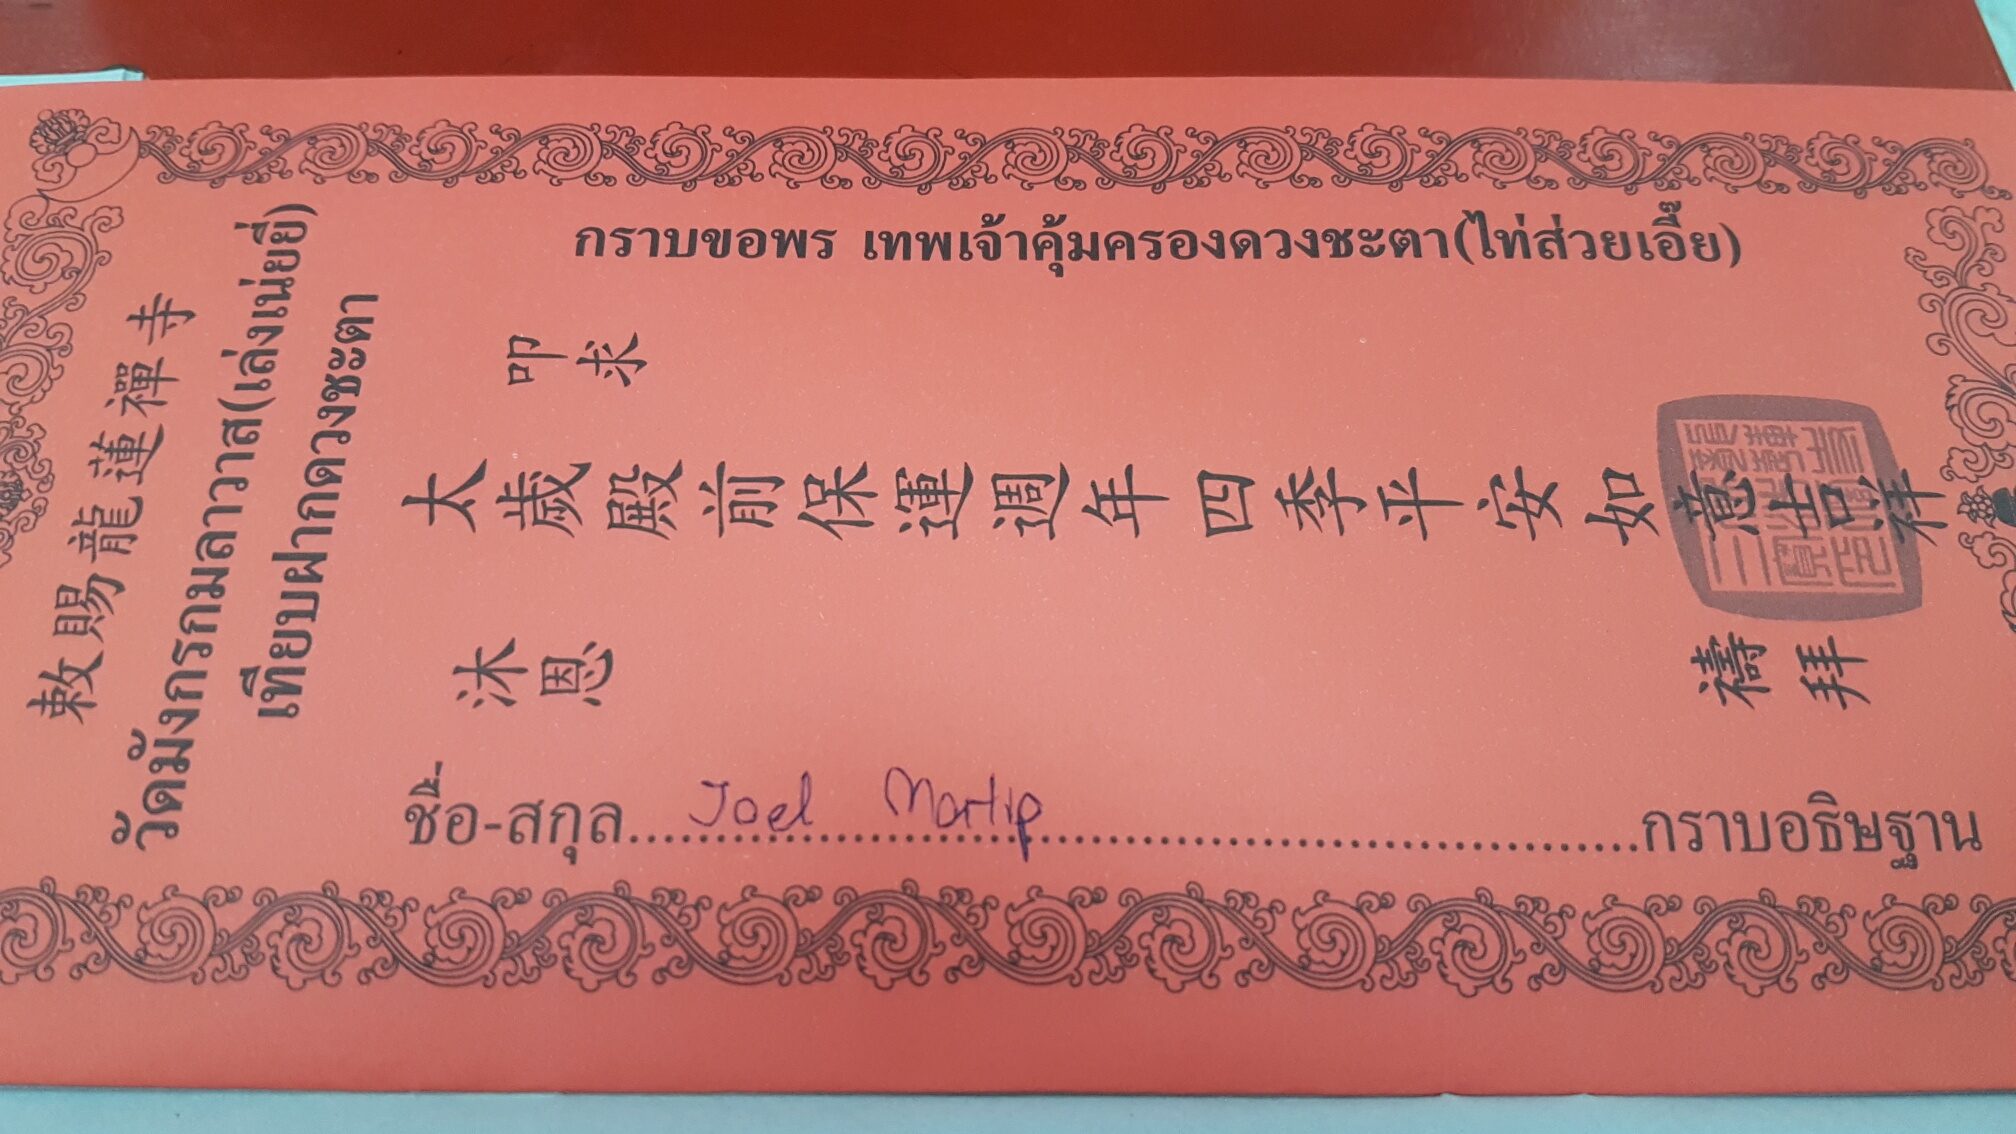 敕賜龍蓮禪寺
วัดมังกรกมลาวาส(เล่งเน่ยยี่)
เทียบฝากดวงชะตา
กราบขอพร เทพเจ้าคุ้มครองดวงชะตา(ไท่ส่วยเอี๊ย)
叩求
太歲殿前保運週年四季平安如意吉祥
沐恩
禱拜
ชื่อ-สกุล Joel Martip กราบอธิษฐาน